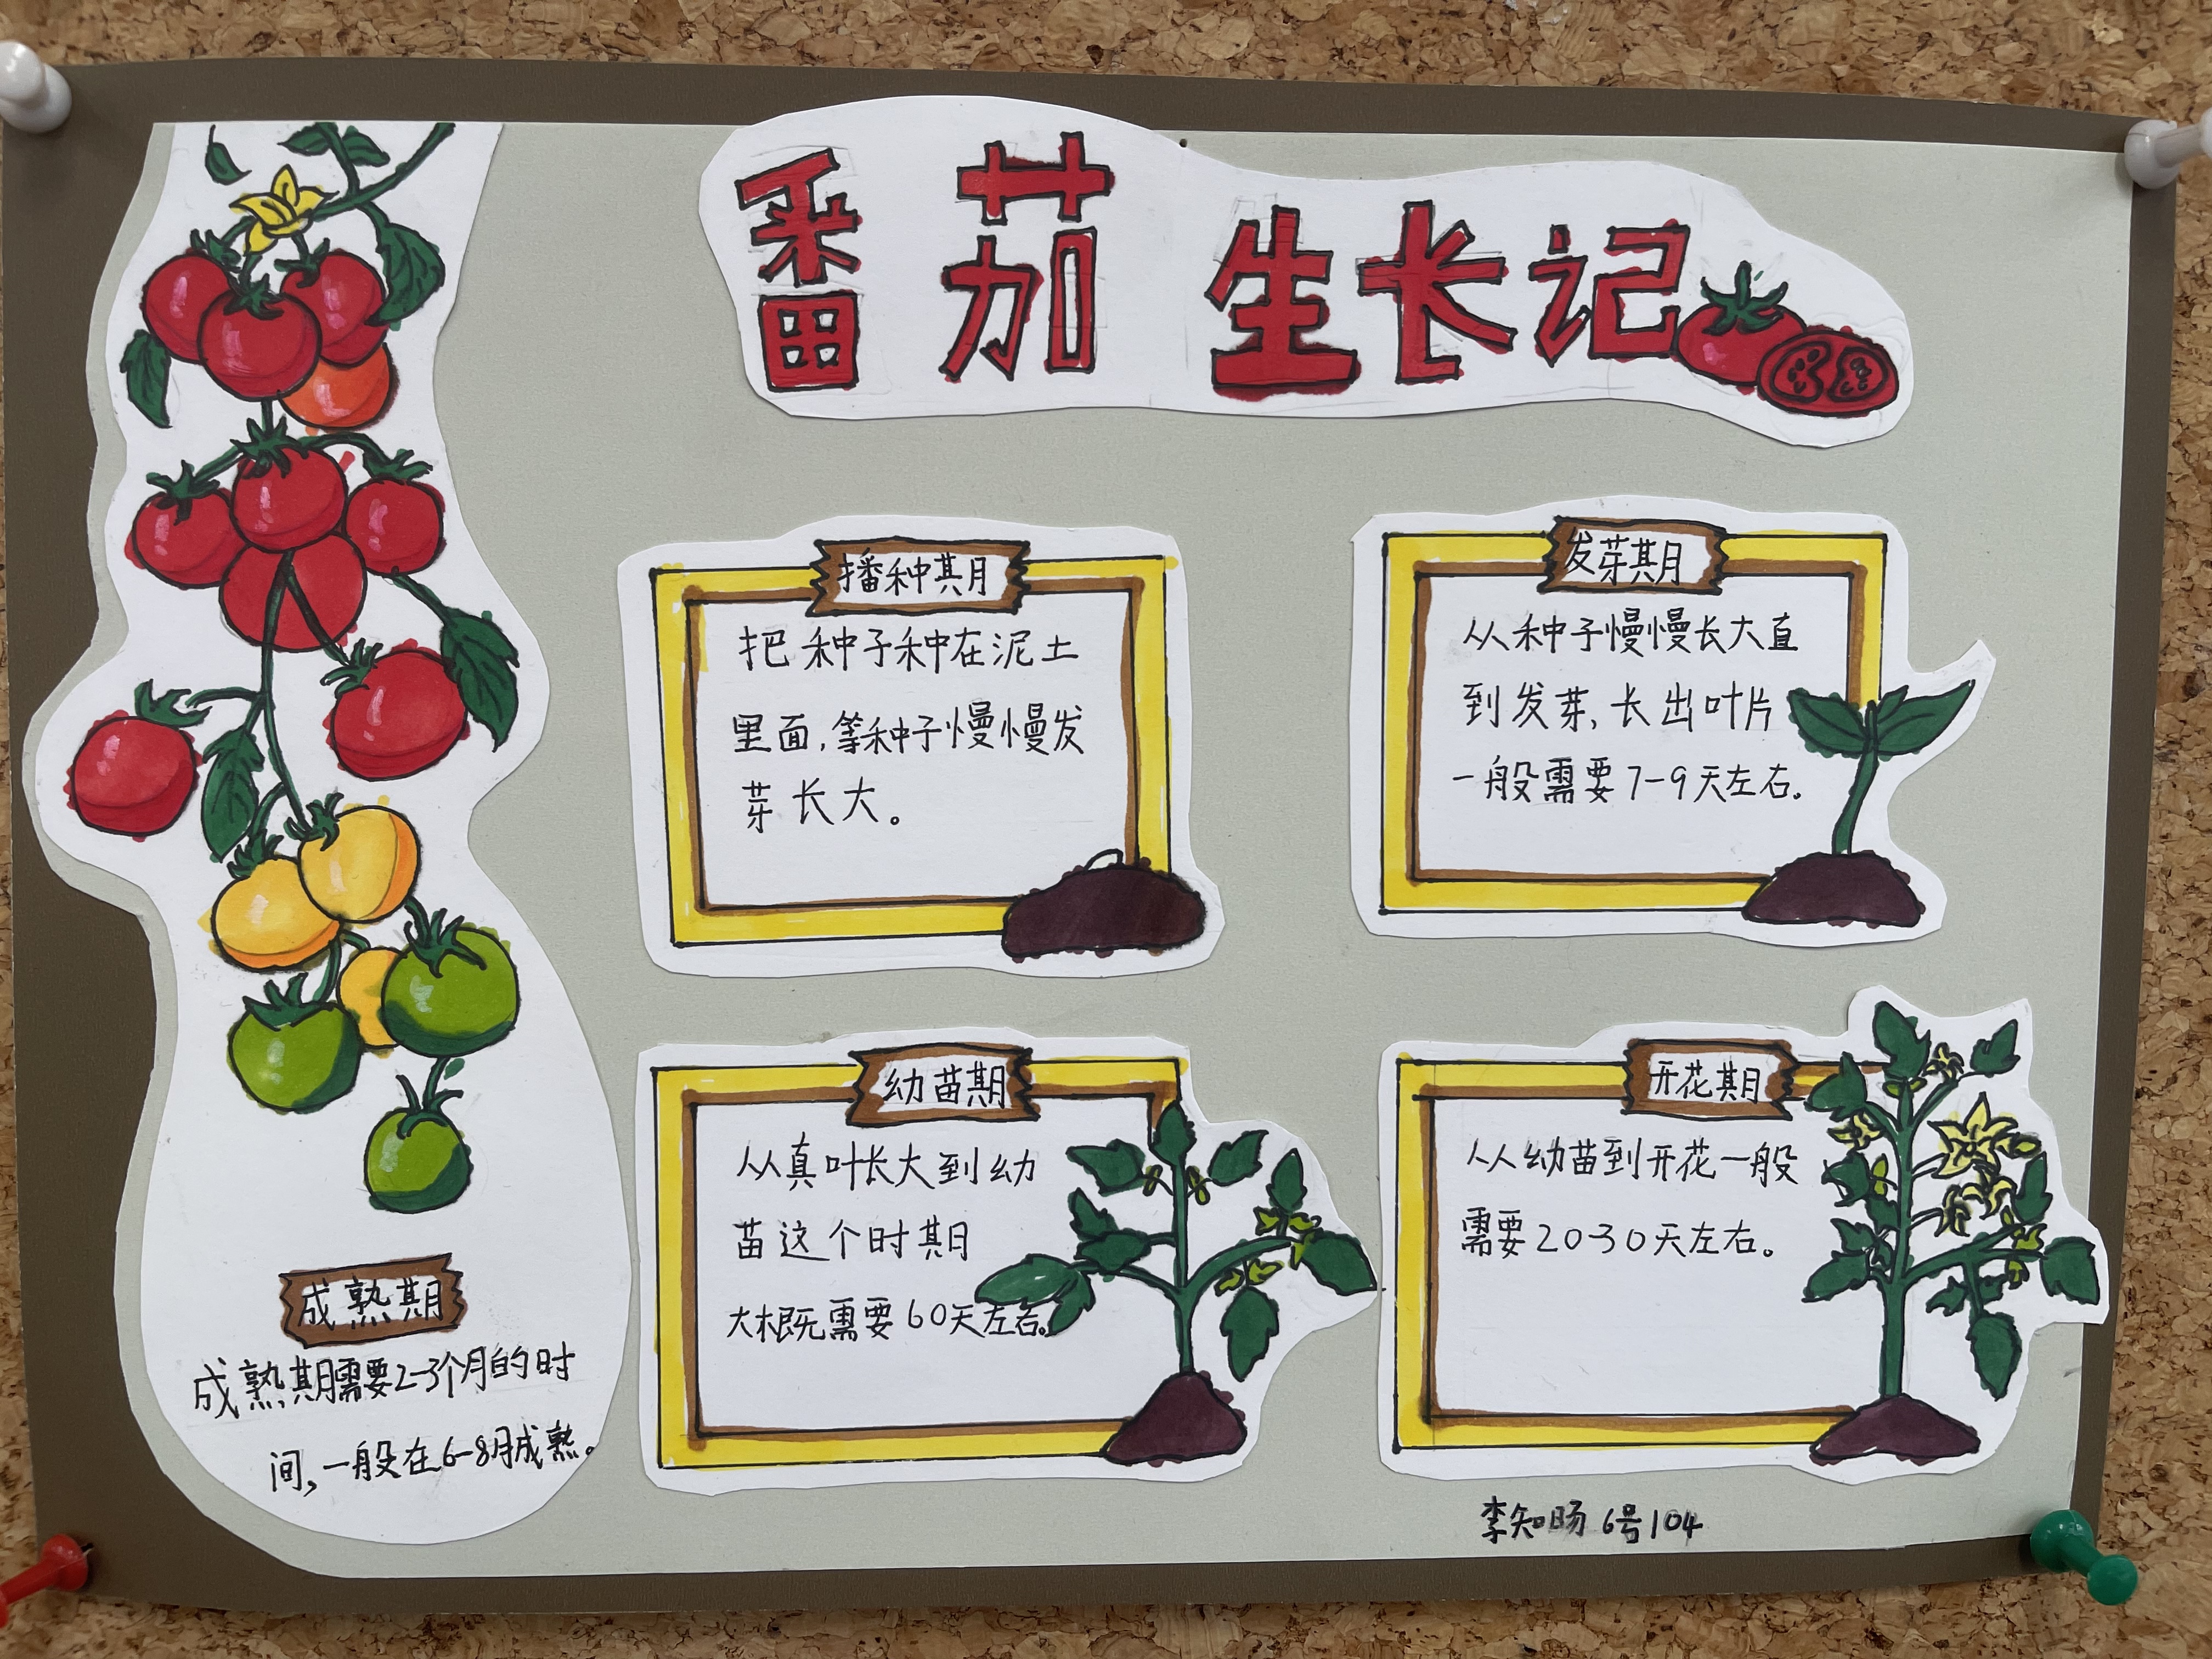 番茄生长记
播种期
把种子种在泥土
里面,等种子慢慢发
芽长大。
发芽期
从种子慢慢长大直
到发芽,长出叶片
一般需要7-9天左右。
幼苗期
从真叶长大到幼
苗这个时期
大概需要60天左右。
开花期
从幼苗到开花一般
需要20-30天左右。
成熟期
成熟期需要2-3个月的时
间,一般在6-8月成熟。
李知旸 6号104